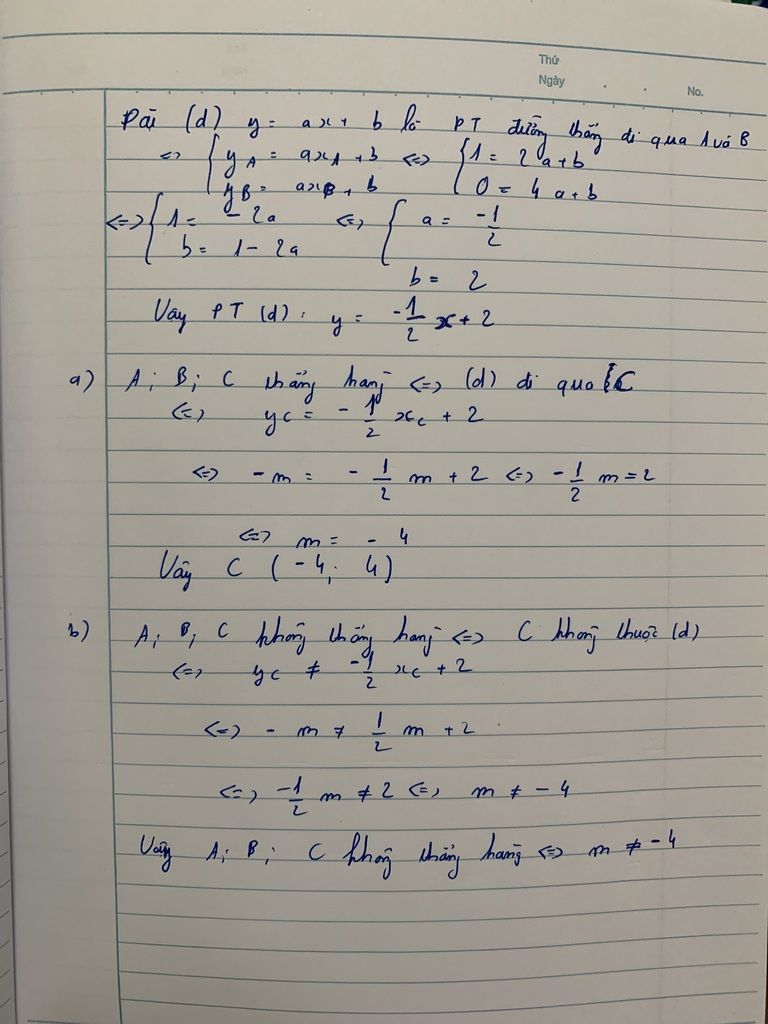 Thứ
Ngày . . No.
Gọi (d) y = ax + b là PT đường thẳng đi qua A và B
<=> { y_A = ax_A + b <=> { 1 = 2a + b
y_B = ax_B + b 0 = 4a + b
<=> { 1 = -2a <=> { a = -1/2
b = 1 - 2a
b = 2
Vậy PT (d): y = -1/2 x + 2
a) A; B; C thẳng hàng <=> (d) đi qua C
<=> y_C = -1/2 x_C + 2
<=> -m = -1/2 m + 2 <=> -1/2 m = 2
<=> m = -4
Vậy C (-4; 4)
b) A; B; C không thẳng hàng <=> C không thuộc (d)
<=> y_C ≠ -1/2 x_C + 2
<=> -m ≠ 1/2 m + 2
<=> -1/2 m ≠ 2 <=> m ≠ -4
Vậy A; B; C không thẳng hàng <=> m ≠ -4